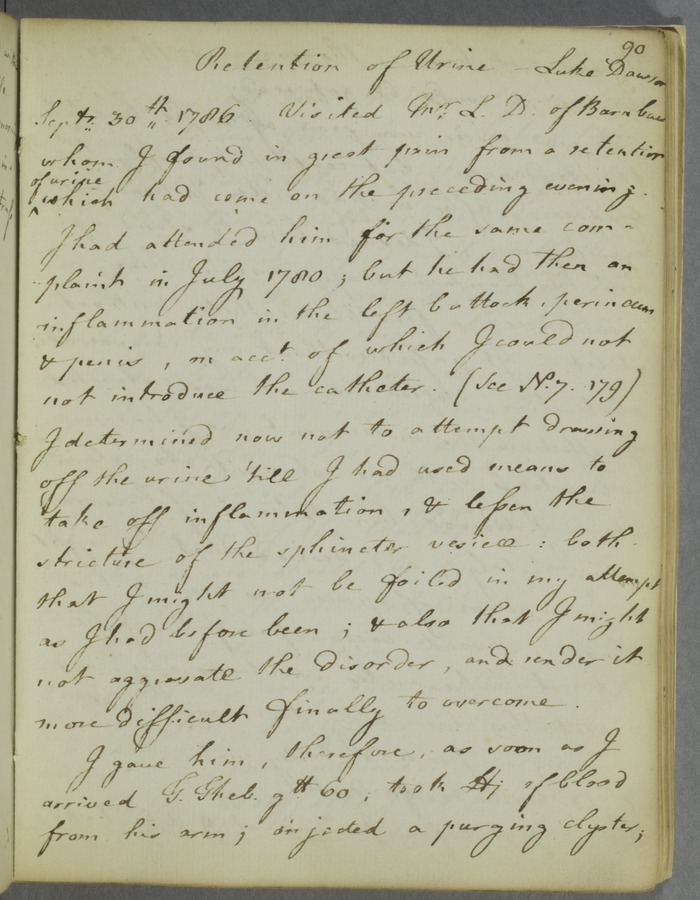 90
Retention of Urine - Luke Dawson
Septr. 30th. 1786. Visited Mr. L. D. of Barnbow
whom I found in great pain from a retention
of urine
^ which had come on the preceding evening.
I had attended him for the same com-
-plaint in July 1780; but he had then an
inflammation in the left buttock, perinaeum
& penis, on acct. of which I could not
not introduce the catheter. (See No. 7. 179)
I determined now not to attempt drawing
off the urine 'till I had used means to
take off inflammation, & lessen the
stricture of the sphincter vesicae: both
that I might not be foiled in my attempt
as I had before been; & also that I might
not aggravate the disorder, and render it
more difficult finally to overcome.
I gave him, therefore, as soon as I
arrived G. Theb. gtt 60; took ℔j of blood
from his arm; injected a purging clyster;